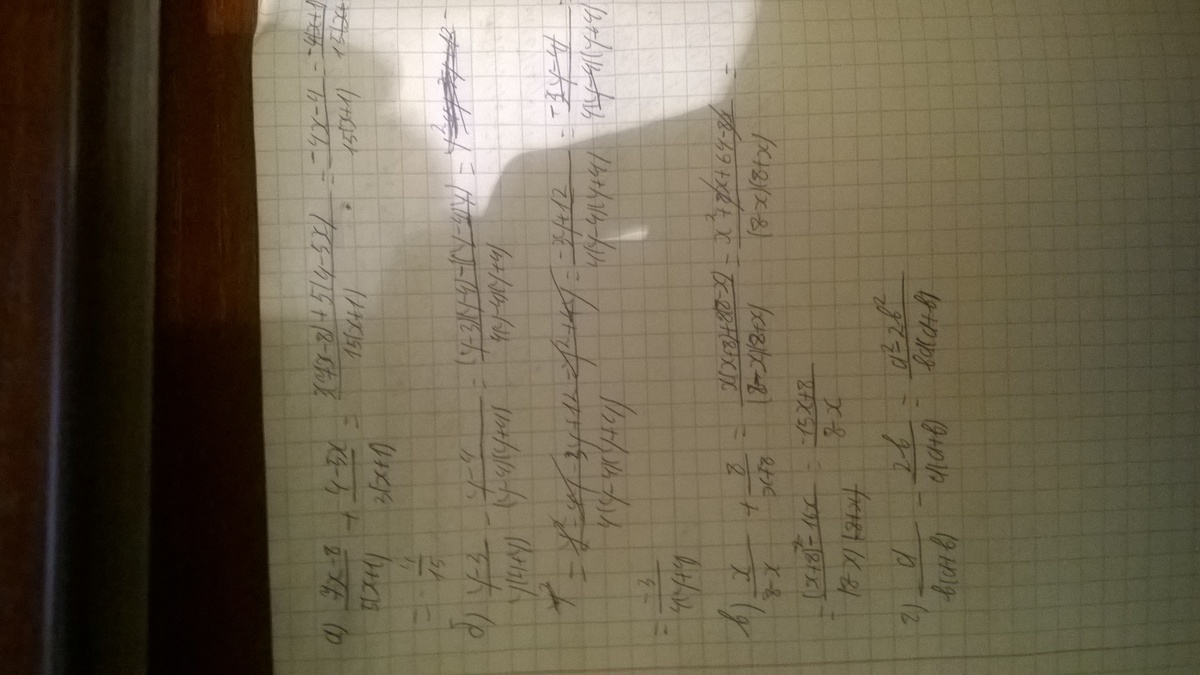 а) (7x-8)/(5(x+1)) + (4-5x)/(3(x+1)) = (3(7x-8)+5(4-5x))/(15(x+1)) = (-4x-4)/(15(x+1)) =
= -4/15
б) (y-3)/(y(y+4)) - (y-4)/((y-4)(y+4)) = ((y-3)(y-4)-(y-4)(y))/(y(y-4)(y+4)) =
= (y²-4y-3y+12-y²+4y)/(y(y-4)(y+4)) = (-3y+12)/(y(y-4)(y+4)) = (-3(y-4))/(y(y-4)(y+4))
= -3/(y(y+4))
в) x/(8-x) + 8/(x+8) = (x(x+8)+8(8-x))/((8-x)(8+x)) = (x²+8x+64-8x)/((8-x)(8+x)) =
= ((x+8)²-16x)/((8-x)(8+x)) = (-15x+8)/(8-x)
г) a/(b(a+b)) - 2b/(a(a+b)) = (a²-2b²)/(ba(a+b))